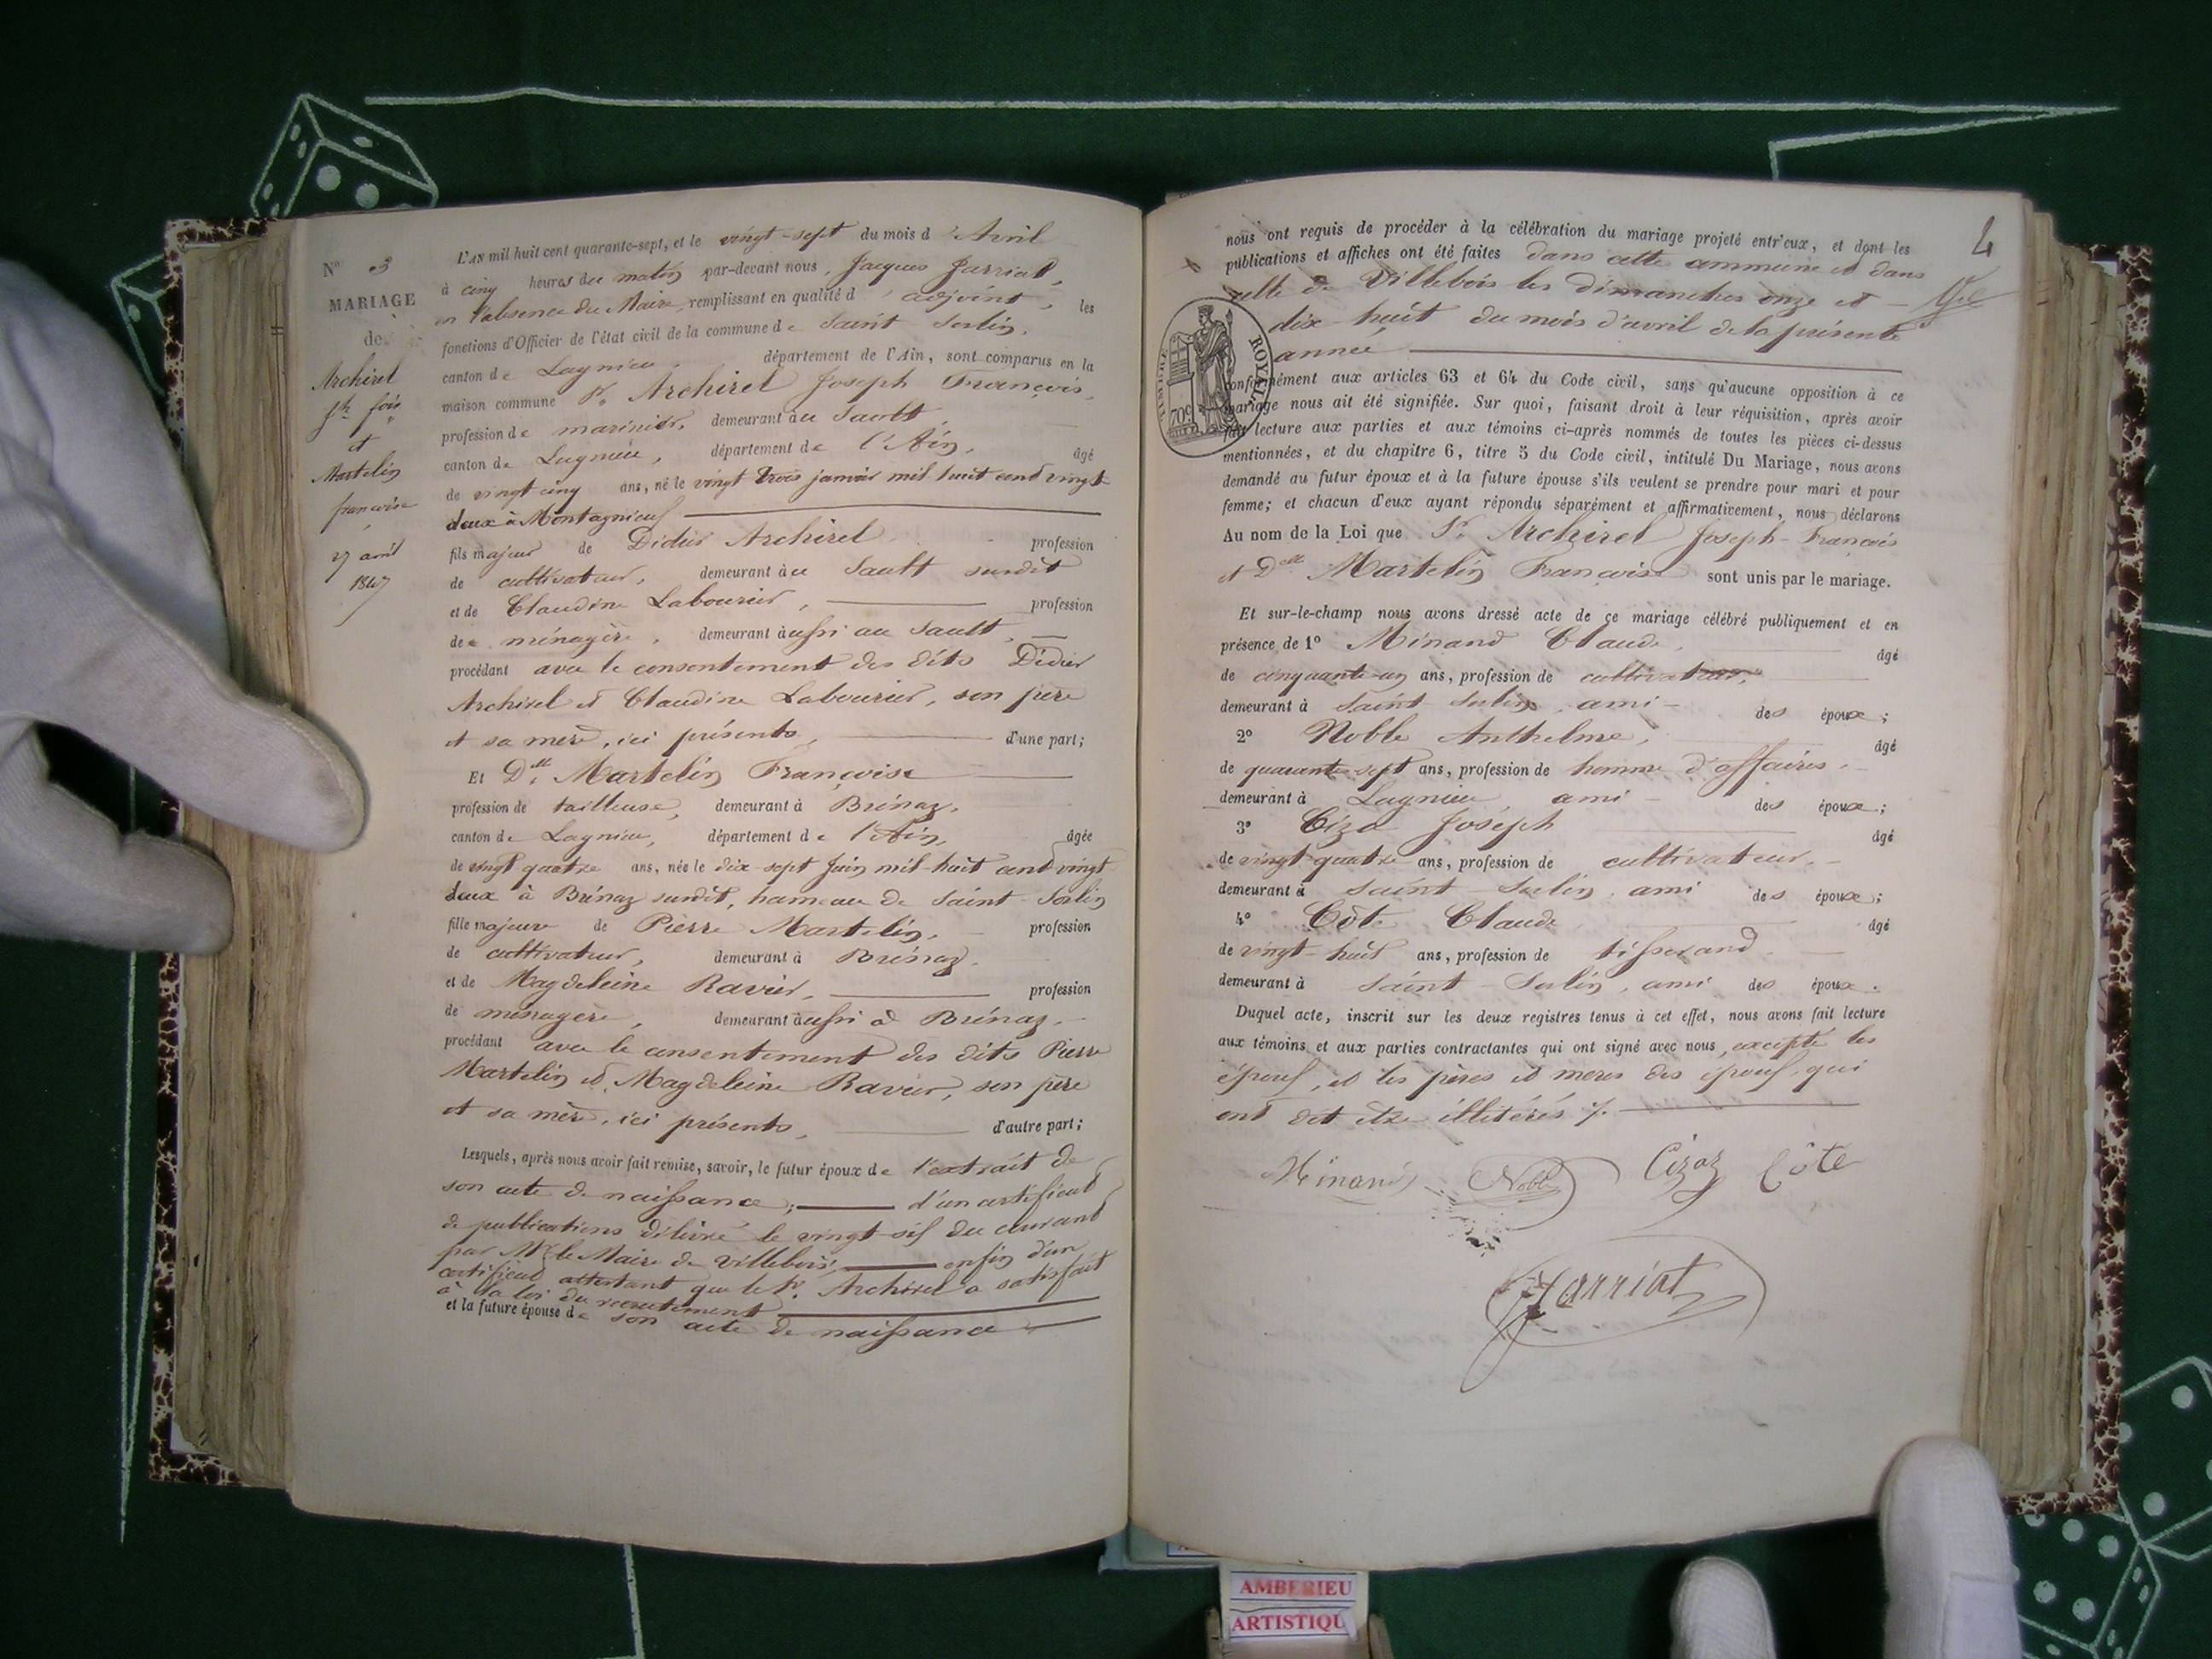 N° 3
MARIAGE
de
Archirel
Jh fois
et
Martelin
françoise
27 avril
1847
L'AN mil huit cent quarante-sept, et le vingt-sept du mois d'Avril
à cinq heures du matin par-devant nous, Jacques Jarriat,
en l'absence du Maire, remplissant en qualité d'adjoint, les
fonctions d'Officier de l'état civil de la commune de Saint Sorlin,
canton de Lagnieu, département de l'Ain, sont comparus en la
maison commune Sr. Archirel Joseph François,
profession de marinier, demeurant au Sault,
canton de Lagnieu, département de l'Ain, âgé
de vingt cinq ans, né le vingt trois janvier mil huit cent vingt
deux à Montagnieu
fils majeur de Didier Archirel profession
de cultivateur, demeurant au Sault susdit
et de Claudine Labourier, profession
de ménagère, demeurant aussi au Sault,
procédant avec le consentement des dits Didier
Archirel et Claudine Labourier, son père
et sa mère, ici présents, d'une part;
Et Dlle. Martelin Françoise
profession de tailleuse, demeurant à Brénaz,
canton de Lagnieu, département de l'Ain, âgée
de vingt quatre ans, née le dix sept Juin mil huit cent vingt
deux à Brénaz susdit, hameau de Saint-Sorlin
fille majeure de Pierre Martelin, profession
de cultivateur, demeurant à Brénaz,
et de Magdeleine Ravier, profession
de ménagère, demeurant aussi à Brénaz,
procédant avec le consentement des dits Pierre
Martelin et Magdeleine Ravier, son père
et sa mère, ici présents, d'autre part;
Lesquels, après nous avoir fait remise, savoir, le futur époux de l'extrait de
son acte de naissance; d'un certificat
de publications délivré le vingt-six du courant
par Mr le Maire de Villebois; enfin d'un
certificat attestant que le Sr. Archirel a satisfait
à la loi du recrutement
et la future épouse de son acte de naissance
4
nous ont requis de procéder à la célébration du mariage projeté entr'eux, et dont les
publications et affiches ont été faites dans cette commune et dans
celle de Villebois les dimanches onze et
dix-huit du mois d'avril de la présente
année
TIMBRE ROYAL
70c
conformément aux articles 63 et 64 du Code civil, sans qu'aucune opposition à ce
mariage nous ait été signifiée. Sur quoi, faisant droit à leur réquisition, après avoir
fait lecture aux parties et aux témoins ci-après nommés de toutes les pièces ci-dessus
mentionnées, et du chapitre 6, titre 5 du Code civil, intitulé Du Mariage, nous avons
demandé au futur époux et à la future épouse s'ils veulent se prendre pour mari et pour
femme; et chacun d'eux ayant répondu séparément et affirmativement, nous déclarons
Au nom de la Loi que Sr. Archirel Joseph-François
et Dlle Martelin Françoise sont unis par le mariage.
Et sur-le-champ nous avons dressé acte de ce mariage célébré publiquement et en
présence de 1° Minand Claude, âgé
de cinquante-un ans, profession de cultivateur,
demeurant à Saint-Sorlin, ami des époux;
2° Noble Anthelme, âgé
de quarante-sept ans, profession de homme d'affaires,
demeurant à Lagnieu, ami des époux;
3° Cizo Joseph âgé
de vingt-quatre ans, profession de cultivateur,
demeurant à Saint-Sorlin, ami des époux;
4° Côte Claude âgé
de vingt-huit ans, profession de tisserand
demeurant à Saint-Sorlin, ami des époux.
Duquel acte, inscrit sur les deux registres tenus à cet effet, nous avons fait lecture
aux témoins et aux parties contractantes qui ont signé avec nous, excepté les
époux, et les pères et mères des époux, qui
ont dit être illitérés
Minand Noble Cizoz Côte
Jarriat
AMBERIEU
ARTISTIQU